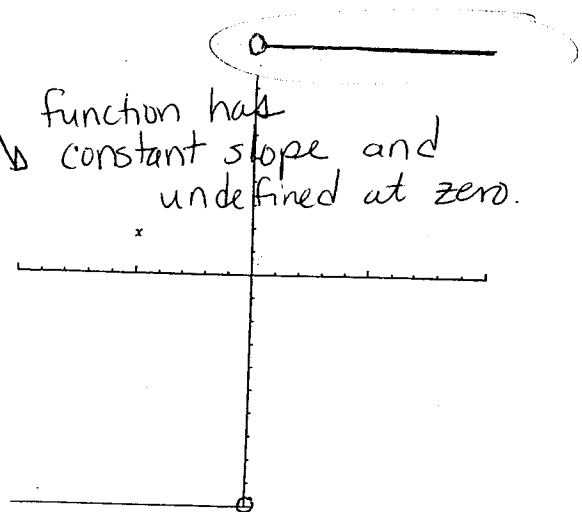 function has
constant slope and
undefined at zero.
x